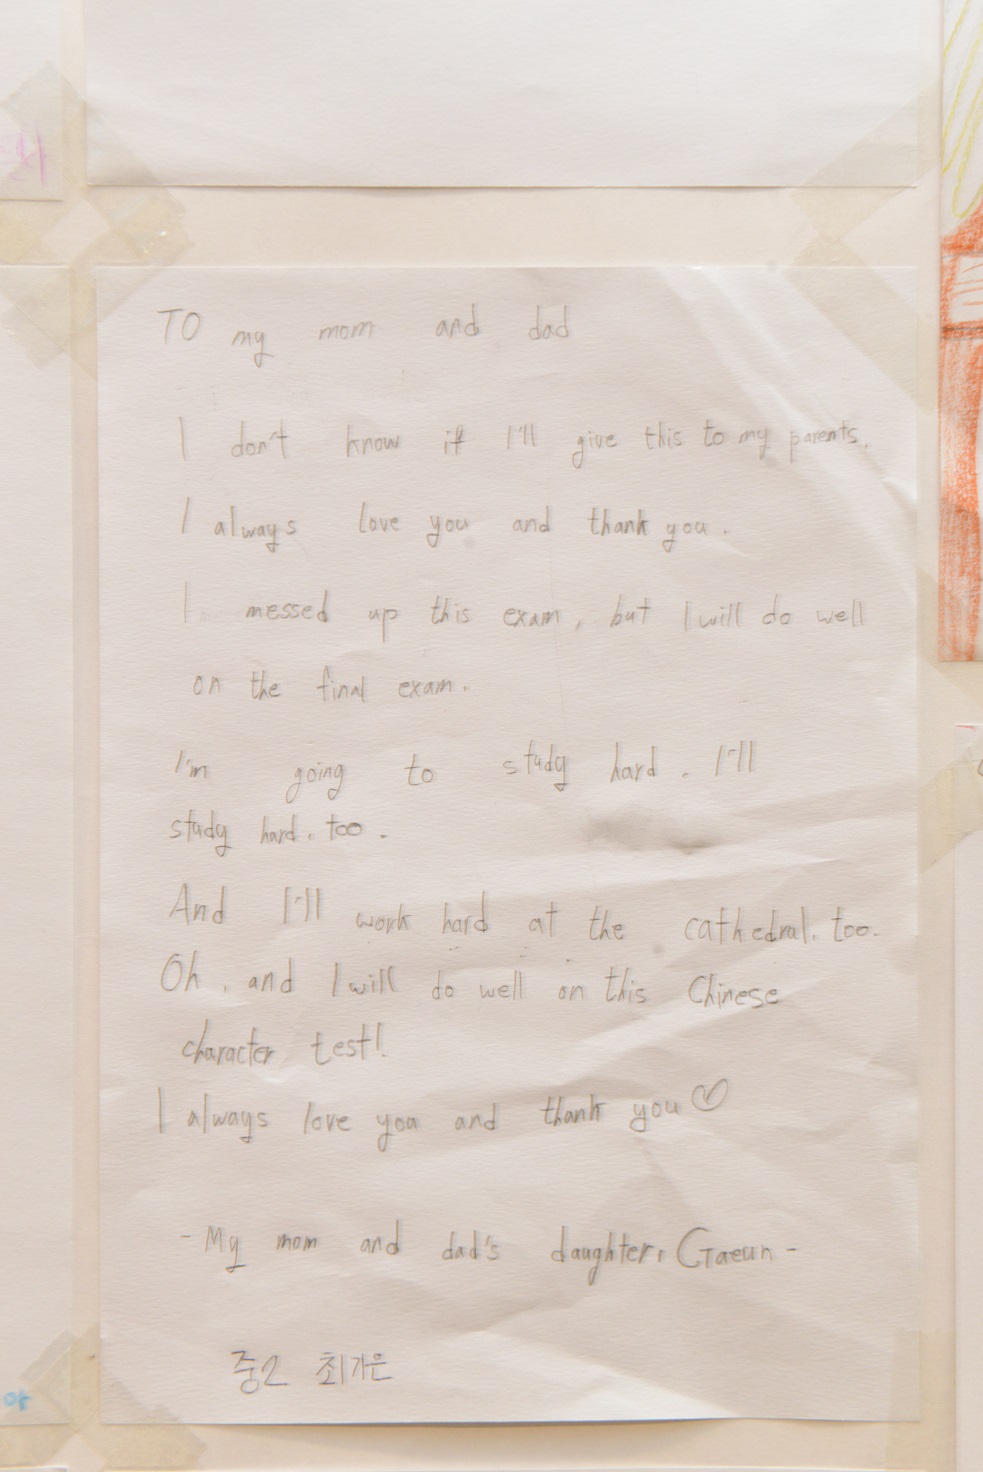 TO my mom and dad
I don't know if I'll give this to my parents.
I always love you and thank you.
I messed up this exam, but I will do well
on the final exam.
I'm going to study hard. I'll
study hard. too.
And I'll work hard at the cathedral. too.
Oh, and I will do well on this Chinese
character test!
I always love you and thank you♡
- My mom and dad's daughter, Gaeun -
중2 최가은